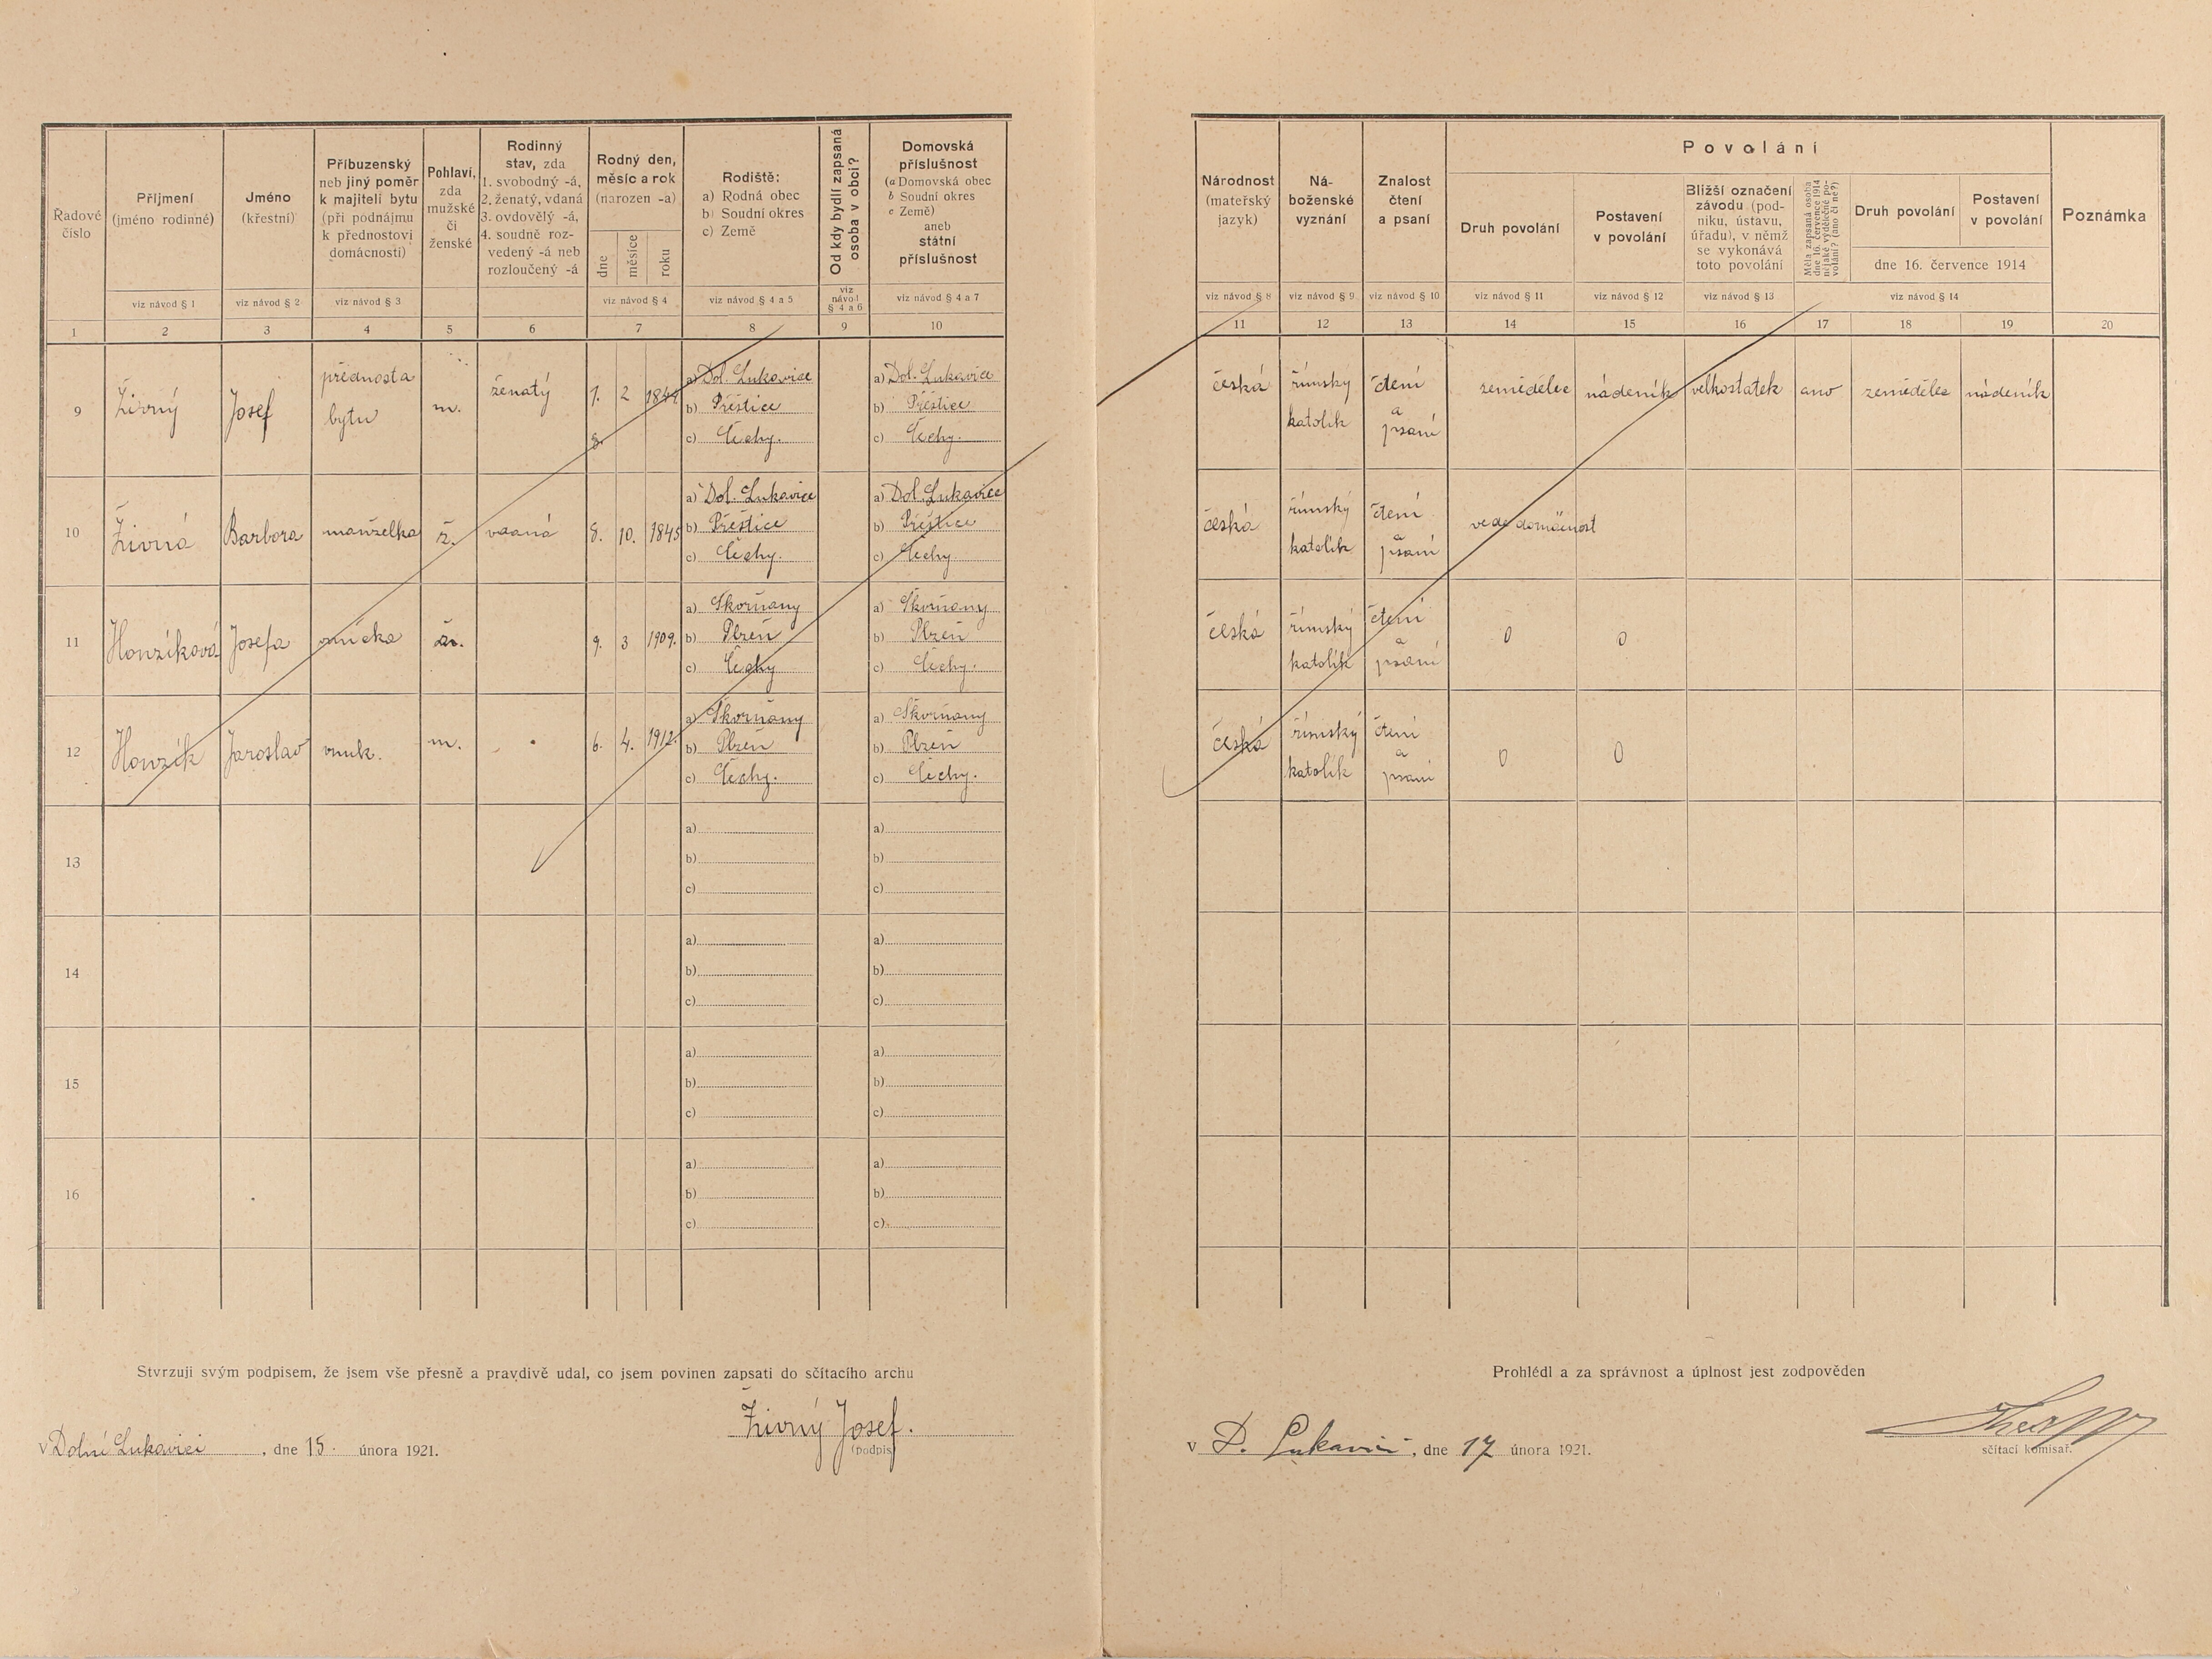 Řadové číslo
Příjmení
(jméno rodinné)
viz návod § 1
Jméno
(křestní)
viz návod § 2
Příbuzenský
neb jiný poměr
k majiteli bytu
(při podnájmu
k přednostovi
domácnosti)
viz návod § 3
Pohlaví,
zda
mužské
či
ženské
Rodinný
stav, zda
1. svobodný -á,
2. ženatý, vdaná
3. ovdovělý -á,
4. soudně roz-
vedený -á neb
rozloučený -á
Rodný den,
měsíc a rok
(narozen -a)
dne
měsíce
roku
viz návod § 4
Rodiště:
a) Rodná obec
b) Soudní okres
c) Země
viz návod § 4 a 5
Od kdy bydlí zapsaná
osoba v obci?
viz
návod
§ 4 a 6
Domovská
příslušnost
(a Domovská obec
b Soudní okres
c Země)
aneb
státní
příslušnost
viz návod § 4 a 7
Národnost
(mateřský
jazyk)
viz návod § 8
Ná-
boženské
vyznání
viz návod § 9
Znalost
čtení
a psaní
viz návod § 10
Povolání
Druh povolání
viz návod § 11
Postavení
v povolání
viz návod § 12
Bližší označení
závodu (pod-
niku, ústavu,
úřadu), v němž
se vykonává
toto povolání
viz návod § 13
Měla zapsaná osoba
dne 16. července 1914
nějaké výdělečné po-
volání? (ano či ne?)
Druh povolání
Postavení
v povolání
dne 16. července 1914
viz návod § 14
Poznámka
1 2 3 4 5 6 7 8 9 10 11 12 13 14 15 16 17 18 19 20
9 Živný Josef přednosta bytu m. ženatý 7. 2
a) Dol. Lukavice a) Dol. Lukavice
b) Přeštice b) Přeštice
c) Čechy. c) Čechy.
česká římský katolík čtení a psaní zemědělec nádeník velkostatek ano zemědělec nádeník
10 Živná Barbora manželka ž. vdaná 8. 10. 1845
a) Dol. Lukavice a) Dol. Lukavice
b) Přeštice b) Přeštice
c) Čechy. c) Čechy.
česká římský katolík čtení a psaní vede domácnost
11 Honzíková Josefa vnučka ž. 9. 3 1909.
a) Skvrňany a) Skvrňany
b) Plzeň b) Plzeň
c) Čechy c) Čechy.
česká římský katolík čtení a psaní 0 0
12 Honzík Jaroslav vnuk. m. 6. 4. 1912.
a) Skvrňany a) Skvrňany
b) Plzeň b) Plzeň
c) Čechy. c) Čechy.
česká římský katolík čtení a psaní 0 0
13
a) a)
b) b)
c) c)
14
a) a)
b) b)
c) c)
15
a) a)
b) b)
c) c)
16
a) a)
b) b)
c) c)
Stvrzuji svým podpisem, že jsem vše přesně a pravdivě udal, co jsem povinen zapsati do sčítacího archu
Živný Josef.
v Dolní Lukavici, dne 15. února 1921.
(podpis)
Prohlédl a za správnost a úplnost jest zodpověden
v D. Lukavici, dne 17 února 1921.
sčítací komisař.